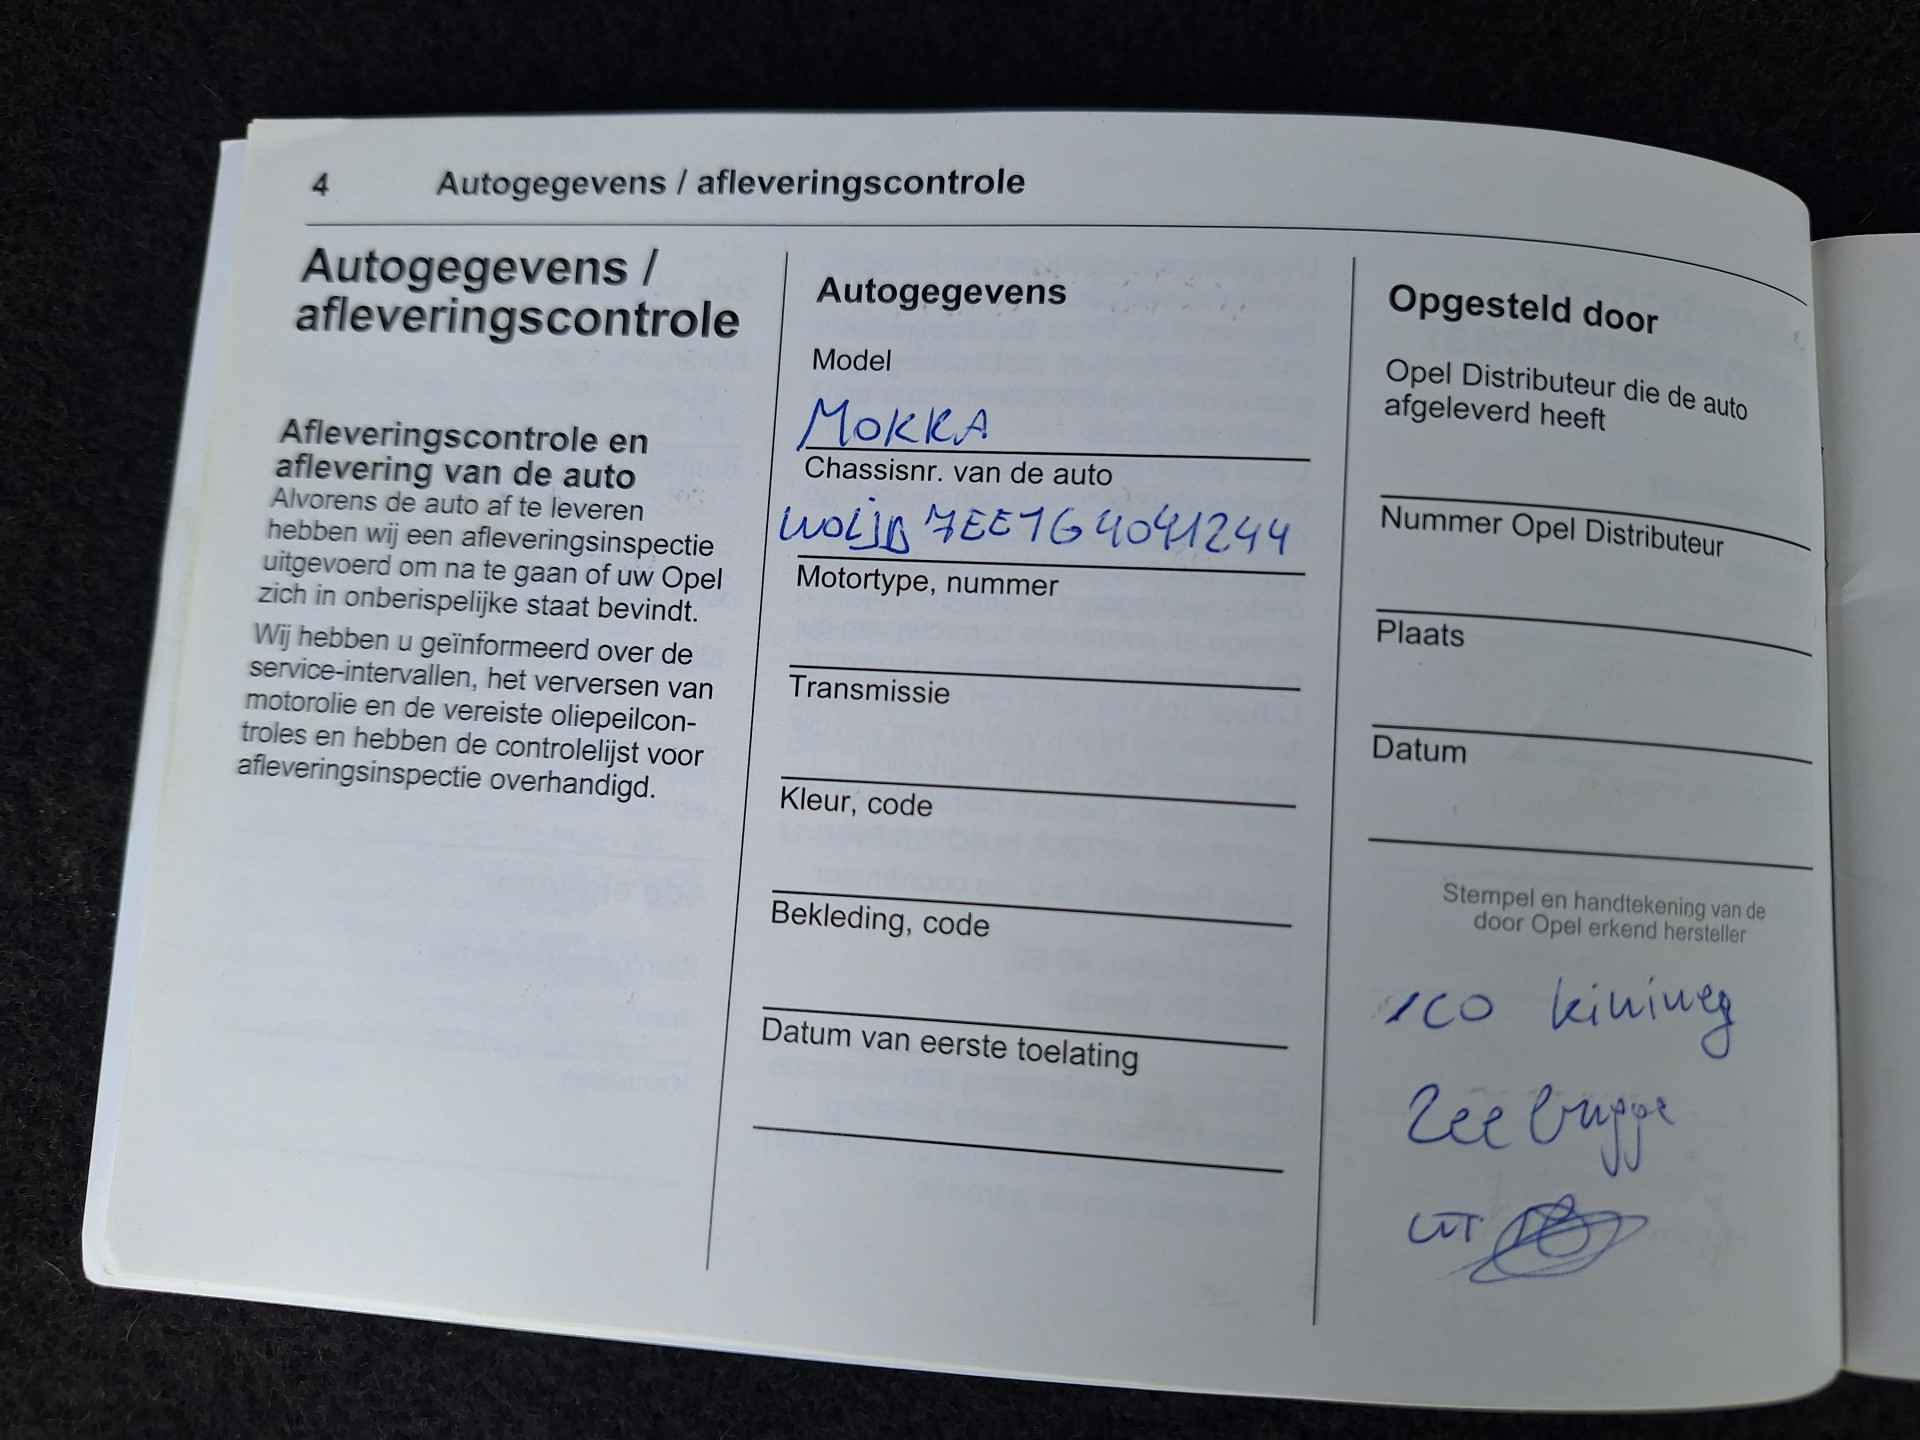 4 Autogegevens / afleveringscontrole
Autogegevens /
afleveringscontrole
Afleveringscontrole en
aflevering van de auto
Alvorens de auto af te leveren
hebben wij een afleveringsinspectie
uitgevoerd om na te gaan of uw Opel
zich in onberispelijke staat bevindt.
Wij hebben u geïnformeerd over de
service-intervallen, het verversen van
motorolie en de vereiste oliepeilcon-
troles en hebben de controlelijst voor
afleveringsinspectie overhandigd.
Autogegevens
Model
MOKKA
Chassisnr. van de auto
W0LJD7EE1G4041244
Motortype, nummer
Transmissie
Kleur, code
Bekleding, code
Datum van eerste toelating
Opgesteld door
Opel Distributeur die de auto
afgeleverd heeft
Nummer Opel Distributeur
Plaats
Datum
Stempel en handtekening van de
door Opel erkend hersteller
ICO
Zeebrugge